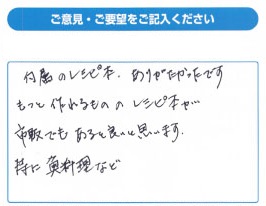 ご意見・ご要望をご記入ください
付属のレシピ本、ありがたかったです
もっと作れるもののレシピ本が…
市販でもあると良いと思います。
特に魚料理など